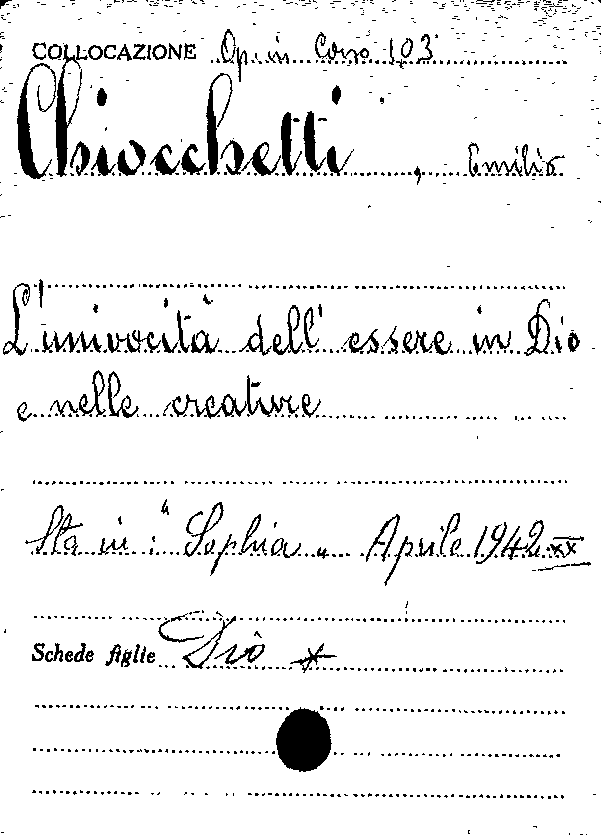 COLLOCAZIONE Op. in Corso 103
Chiocchetti, Emilio
L'univocità dell'essere in Dio
e nelle creature
Sta in: "Sophia" Aprile 1942 XX
Schede figlie Dio *